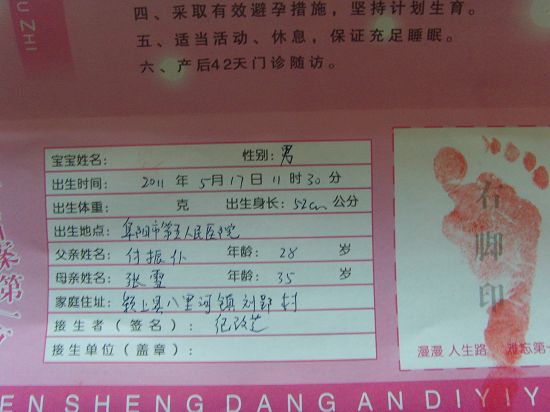 U ZHI
四、采取有效避孕措施，坚持计划生育。
五、适当活动、休息，保证充足睡眠。
六、产后42天门诊随访。
宝宝姓名： 性别：男
出生时间： 2011 年 5月17日11时30分
出生体重： 克 出生身长：52cm公分
出生地点：阜阳市第五人民医院
父亲姓名：付振仆 年龄：28 岁
母亲姓名：张雪 年龄：35 岁
家庭住址：颍上县八里河镇刘郢村
接生者（签名）：纪改芝
接生单位（盖章）：
右脚印
漫漫 人生路 难忘第一
EN SHENG DANG AN DI YI Y